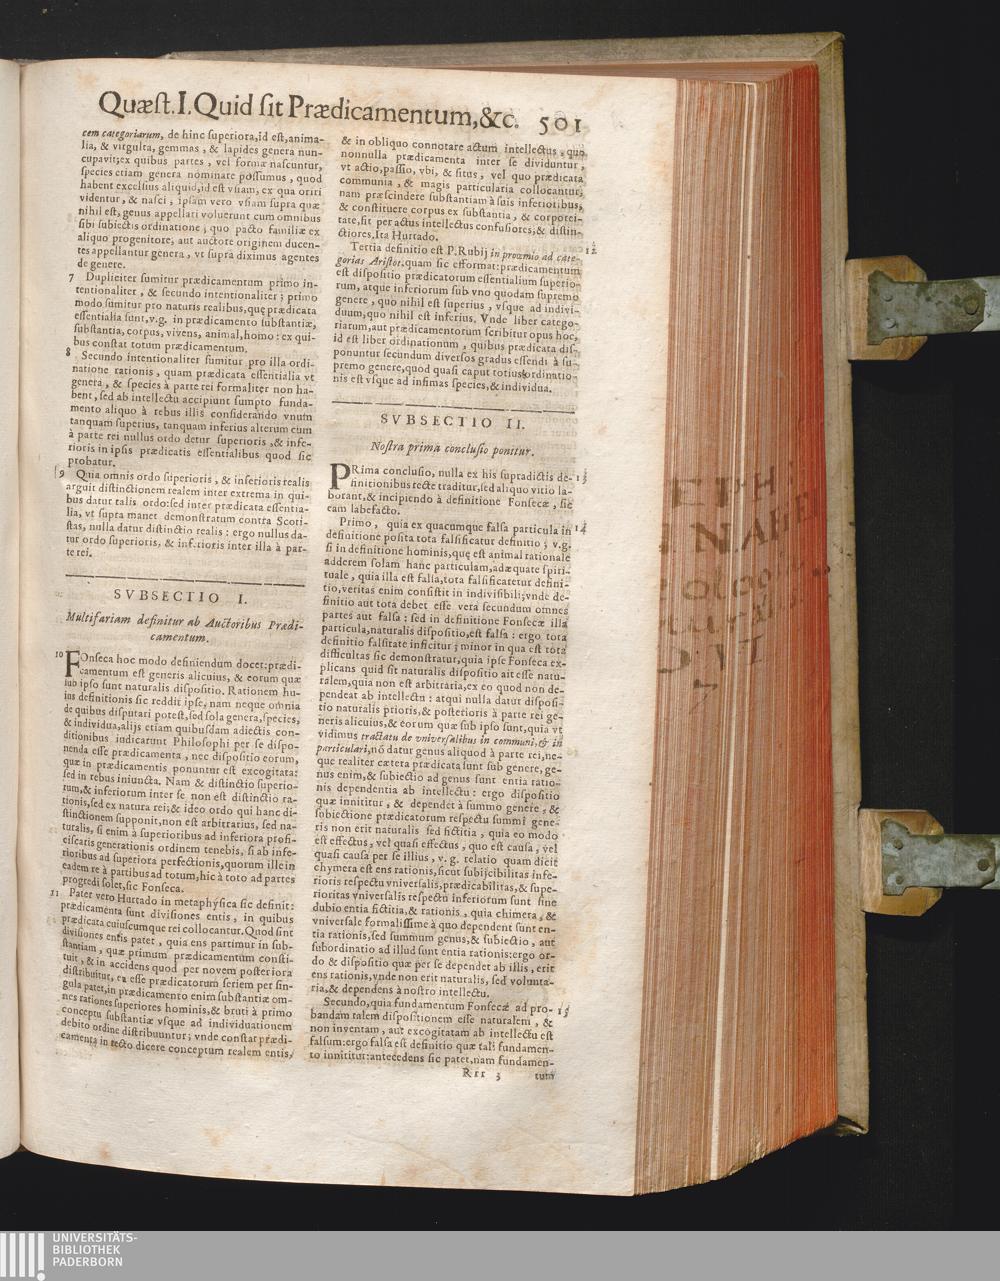 Quæst. I. Quid sit Prædicamentum, &c. 501
cem categoriarum, de hinc superiora, id est, anima-
lia, & virgulta, gemmas, & lapides genera nun-
cupavit; ex quibus partes, vel formæ nascuntur,
species etiam genera nominare possumus, quod
habent excelsius aliquid, id est vsiam, ex qua oriri
videntur, & nasci, ipsam vero vsiam supra quæ
nihil est, genus appellari voluerunt cum omnibus
sibi subiectis ordinatione; quo pacto familiæ ex
aliquo progenitore, aut auctore originem ducen-
tes appellantur genera, vt supra diximus agentes
de genere.
7 Dupliciter sumitur prædicamentum primo in-
tentionaliter, & secundo intentionaliter; primo
modo sumitur pro naturis realibus, quę prædicata
essentialia sunt, v.g. in prædicamento substantiæ,
substantia, corpus, vivens, animal, homo: ex qui-
bus constat totum prædicamentum.
8 Secundo intentionaliter sumitur pro illa ordi-
natione rationis, quam prædicata essentialia vt
genera, & species à parte rei formaliter non ha-
bent, sed ab intellectu accipiunt sumpto funda-
mento aliquo à rebus illis considerando vnum
tanquam superius, tanquam inferius alterum cum
à parte rei nullus ordo detur superioris, & infe-
rioris in ipsis prædicatis essentialibus quod sic
probatur.
9 Quia omnis ordo superioris, & inferioris realis
arguit distinctionem realem inter extrema in qui-
bus datur talis ordo: sed inter prædicata essentia-
lia, vt supra manet demonstratum contra Scoti-
stas, nulla datur distinctio realis: ergo nullus da-
tur ordo superioris, & inferioris inter illa à par-
te rei.
SVBSECTIO I.
Multifariam definitur ab Auctoribus Prædi-
camentum.
10 FOnseca hoc modo definiendum docet: prædi-
camentum est generis alicuius, & eorum quæ
sub ipso sunt naturalis dispositio. Rationem hu-
ius definitionis sic reddit ipse, nam neque omnia
de quibus disputari potest, sed sola genera, species,
& individua, alijs etiam quibusdam adiectis con-
ditionibus iudicarunt Philosophi per se dispo-
nenda esse prædicamenta, nec dispositio eorum,
quæ in prædicamentis ponuntur est excogitata:
sed in rebus iniuncta. Nam & distinctio superio-
rum, & inferiorum inter se non est distinctio ra-
tionis, sed ex natura rei; & ideo ordo qui hanc di-
stinctionem supponit, non est arbitrarius, sed na-
turalis, si enim à superioribus ad inferiora profi-
ciscaris generationis ordinem tenebis, si ab infe-
rioribus ad superiora perfectionis, quorum ille in
eadem re à partibus ad totum, hic à toto ad partes
progredi solet, sic Fonseca.
11 Pater vero Hurtado in metaphysica sic definit:
prædicamenta sunt divisiones entis, in quibus
prædicata cuiuscumque rei collocantur. Quod sint
divisiones entis patet, quia ens partimur in sub-
stantiam, quæ primum prædicamentum consti-
tuit, & in accidens quod per novem posteriora
distribuitur, ea esse prædicatorum seriem per sin-
gula patet, in prædicamento enim substantiæ om-
nes rationes superiores hominis, & bruti à primo
conceptu substantiæ vsque ad individuationem
debito ordine distribuuntur; vnde constat prædi-
camenta in recto dicere conceptum realem entis,
& in obliquo connotare actum intellectus, quo
nonnulla prædicamenta inter se dividuntur,
vt actio, passio, vbi, & situs, vel quo prædicata
communia, & magis particularia collocantur;
nam præscindere substantiam à suis inferioribus,
& constituere corpus ex substantia, & corporei-
tate, fit per actus intellectus confusiores, & distin-
ctiores. Ita Hurtado.
Tertia definitio est P. Rubij in proœmio ad cate- 12
gorias Aristot. quam sic efformat: prædicamentum
est dispositio prædicatorum essentialium superio-
rum, atque inferiorum sub vno quodam supremo
genere, quo nihil est superius, vsque ad indivi-
duum, quo nihil est inferius. Vnde liber catego-
riarum, aut prædicamentorum scribitur opus hoc,
id est liber ordinationum, quibus prædicata dis-
ponuntur secundum diversos gradus essendi à su-
premo genere, quod quasi caput totius ordinatio-
nis est vsque ad infimas species, & individua.
SVBSECTIO II.
Nostra prima conclusio ponitur.
PRima conclusio, nulla ex his supradictis de- 13
finitionibus recte traditur, sed aliquo vitio la-
borant, & incipiendo à definitione Fonsecæ, sic
eam labefacto.
Primo, quia ex quacumque falsa particula in 14
definitione posita tota falsificatur definitio; v.g.
si in definitione hominis, quę est animal rationale
adderem solam hanc particulam, adæquate spiri-
tuale, quia illa est falsa, tota falsificatetur defini-
tio, veritas enim consistit in indivisibili; vnde de-
finitio aut tota debet esse vera secundum omnes
partes aut falsa: sed in definitione Fonsecæ illa
particula, naturalis dispositio, est falsa: ergo tota
definitio falsitate inficitur; minor in qua est tota
difficultas sic demonstratur, quia ipse Fonseca ex-
plicans quid sit naturalis dispositio ait esse natu-
ralem, quia non est arbitraria, ex eo quod non de-
pendeat ab intellectu: atqui nulla datur disposi-
tio naturalis prioris, & posterioris à parte rei ge-
neris alicuius, & eorum quæ sub ipso sunt, quia vt
vidimus tractatu de vniversalibus in communi, & in
particulari, nō datur genus aliquod à parte rei, ne-
que realiter cætera prædicata sunt sub genere, ge-
nus enim, & subiectio ad genus sunt entia ratio-
nis dependentia ab intellectu: ergo dispositio
quæ innititur, & dependet à summo genere, &
subiectione prædicatorum respectu summi gene-
ris non erit naturalis sed fictitia, quia eo modo
est effectus, vel quasi effectus, quo est causa, vel
quasi causa per se illius, v. g. relatio quam dicit
chymera est ens rationis, sicut subijcibilitas infe-
rioris respectu vniversalis, prædicabilitas, & supe-
rioritas vniversalis respectu inferiorum sunt sine
dubio entia fictitia, & rationis, quia chimera, &
vniversale formalissime à quo dependent sunt en-
tia rationis, sed summum genus, & subiectio, aut
subordinatio ad illud sunt entia rationis: ergo or-
do & dispositio quæ per se dependet ab illis, erit
ens rationis, vnde non erit naturalis, sed volunta-
ria, & dependens à nostro intellectu.
Secundo, quia fundamentum Fonsecæ ad pro- 15
bandam talem dispositionem esse naturalem, &
non inventam, aut excogitatam ab intellectu est
falsum: ergo falsa est definitio quæ tali fundamen-
to innititur: antecedens sic patet, nam fundamen-
Rrr 3 tum
UNIVERSITÄTS-
BIBLIOTHEK
PADERBORN